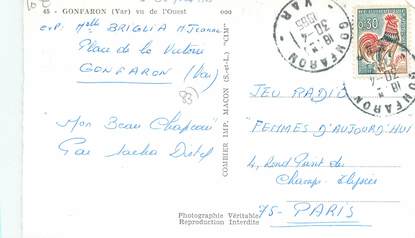 45 - GONFARON (Var) vu de l'Ouest
exp. Melle BRIGLIA M. Jeanne
Place de la Victoire
GONFARON (Var)
83
Mon Beau Chapeau
Par Sacha Distel
COMBIER IMP. MACON (S.-et-L.) "CIM"
Photographie Véritable
Reproduction Interdite
GONFARON
VAR
18 H
30-4
1965
0,30
GONFARON
18 H
30-4
JEU RADIO
"FEMMES D'AUJOURD'HUI
4, Rond Point des
Champs-Elysées
75 - PARIS